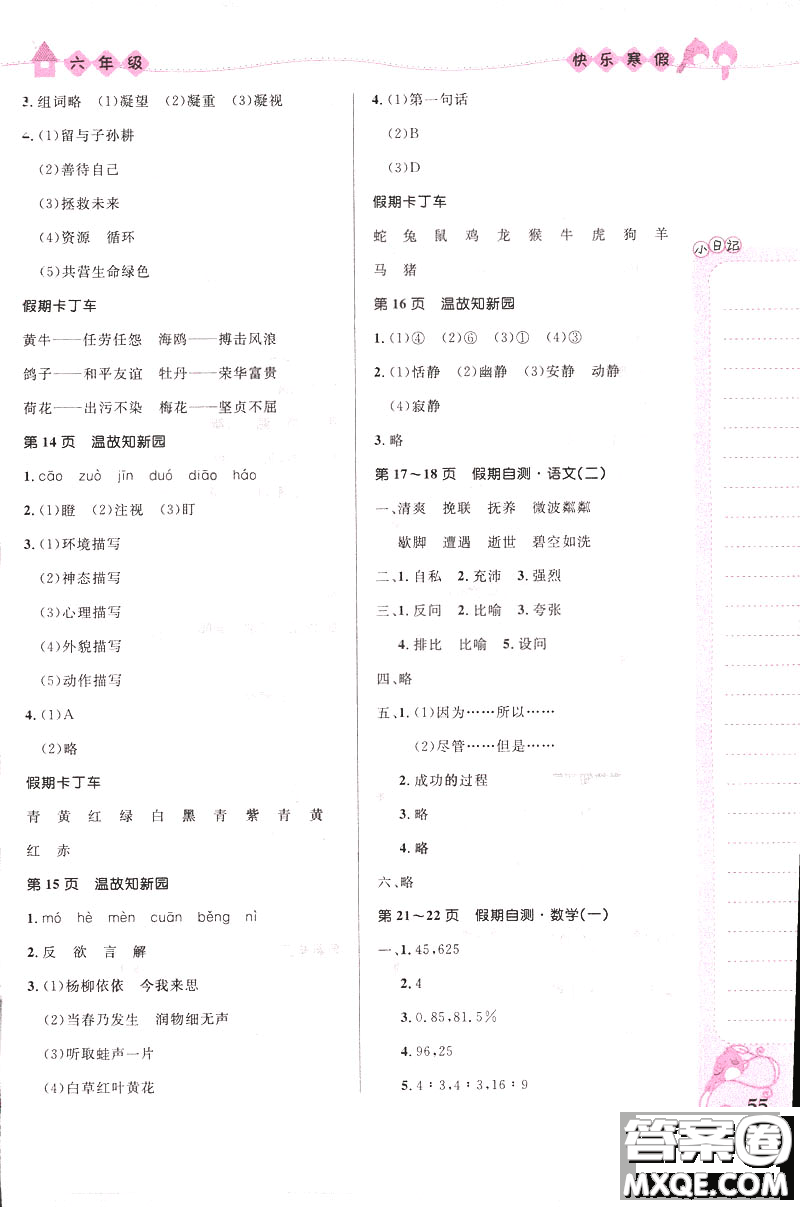 六年级
快乐寒假
3.组词略 (1)凝望 (2)凝重 (3)凝视
(1)留与子孙耕
(2)善待自己
(3)拯救未来
(4)资源 循环
(5)共营生命绿色
假期卡丁车
黄牛——任劳任怨 海鸥——搏击风浪
鸽子——和平友谊 牡丹——荣华富贵
荷花——出污不染 梅花——坚贞不屈
第14页 温故知新园
1.cāo zuò jīn duó diāo háo
2.(1)瞪 (2)注视 (3)盯
3.(1)环境描写
(2)神态描写
(3)心理描写
(4)外貌描写
(5)动作描写
4.(1)A
(2)略
假期卡丁车
青 黄 红 绿 白 黑 青 紫 青 黄
红 赤
第15页 温故知新园
1.mó hè mèn cuān běng nì
2.反 欲 言 解
3.(1)杨柳依依 今我来思
(2)当春乃发生 润物细无声
(3)听取蛙声一片
(4)白草红叶黄花
4.(1)第一句话
(2)B
(3)D
假期卡丁车
蛇 兔 鼠 鸡 龙 猴 牛 虎 狗 羊
马 猪
第16页 温故知新园
1.(1)④ (2)⑥ (3)① (4)③
2.(1)恬静 (2)幽静 (3)安静 动静
(4)寂静
3.略
第17～18页 假期自测·语文(二)
一、清爽 挽联 抚养 微波粼粼
歇脚 遭遇 逝世 碧空如洗
二、1.自私 2.充沛 3.强烈
三、1.反问 2.比喻 3.夸张
4.排比 比喻 5.设问
四、略
五、1.(1)因为……所以……
(2)尽管……但是……
2.成功的过程
3.略
4.略
六、略
第21～22页 假期自测·数学(一)
一、1.45,625
2.4
3.0.85,81.5%
4.96,25
5.4∶3,4∶3,16∶9
小日记
55
答案圈
MXQE.COM